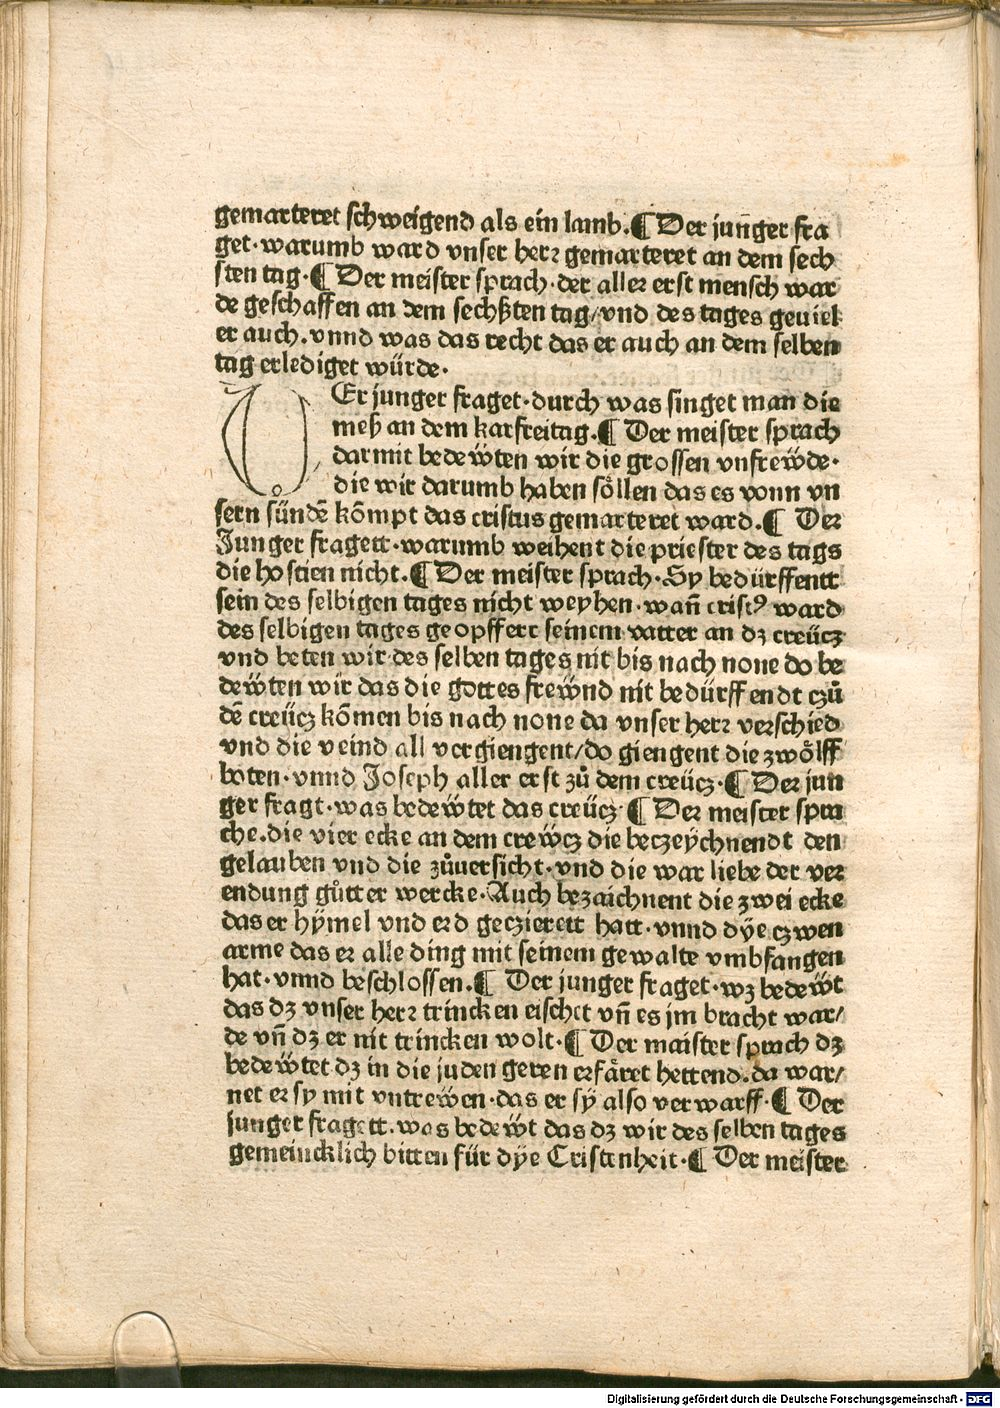 gemarteret schweigend als ein lamb.¶ Der jun̄ger fra
get·warumb ward vnser herꝛ gemarteret an dem sech
sten tag·¶ Der meister sprach·der alleꝛ erst mensch war
de geschaffen an dem sechßten tag/vnd des tages geuiel
er auch.vnnd was das recht das er auch an dem selben
tag erlediget würde·
DEr junger fraget·durch was singet man die
meß an dem karfreitag.¶ Der meister sprach
darmit bedewͤten wir die grossen vnfrewͤde·
die wir darumb haben soͤllen das es vonn vn
sern sündē kōmpt das cristus gemarteret ward.¶ Der
Junger fragett·warumb weihent die priester des tags
die hostien nicht.¶ Der meister sprach·Sy bedürffentt
sein des selbigen tages nicht weyhen·wan̄ cristꝰ ward
des selbigen tages geopffert seinem vatter an dꝫ creücz
vnd beten wir des selben tages nit bis nach none do be
dewͤten wir das die gottes frewͤnd nit bedürffendt czů
dē creücz kōmen bis nach none da vnser herꝛ verschied
vnd die veind all vergiengent/do giengent die zwoͤlff
boten·vnnd Joseph aller erst zů dem creücz·¶ Der jun
ger fragt·was bedewͤtet das creücz·¶ Der meister spra
che.die vier ecke an dem crewͤcz die beczeÿchnendt den
gelauben vnd die zůversicht·vnd die war liebe der ver
endung gůtter wercke·Auch bezaichnent die zwei ecke
das er hÿmel vnd erd geczierett hatt·vnnd dÿe czwen
arme das er alle ding mit seinem gewalte vmbfangen
hat·vnnd beschlossen.¶ Der junger fraget·wꝫ bedewͤt
das dꝫ vnser herꝛ trincken eischet vn̄ es jm bracht war/
de vn̄ dꝫ er nit trincken wolt·¶ Der maister sprach dꝫ
bedewͤtet dꝫ in die juden geren erfaͤret hettend.da war/
net er sy mit vntrewͤen·das er sÿ also verwarff·¶ Der
junger fragett.was bedewͤt das dꝫ wir des selben tages
gemeincklich bitten für dÿe Cristenheit·¶ Der meister
Digitalisierung gefördert durch die Deutsche Forschungsgemeinschaft - DFG